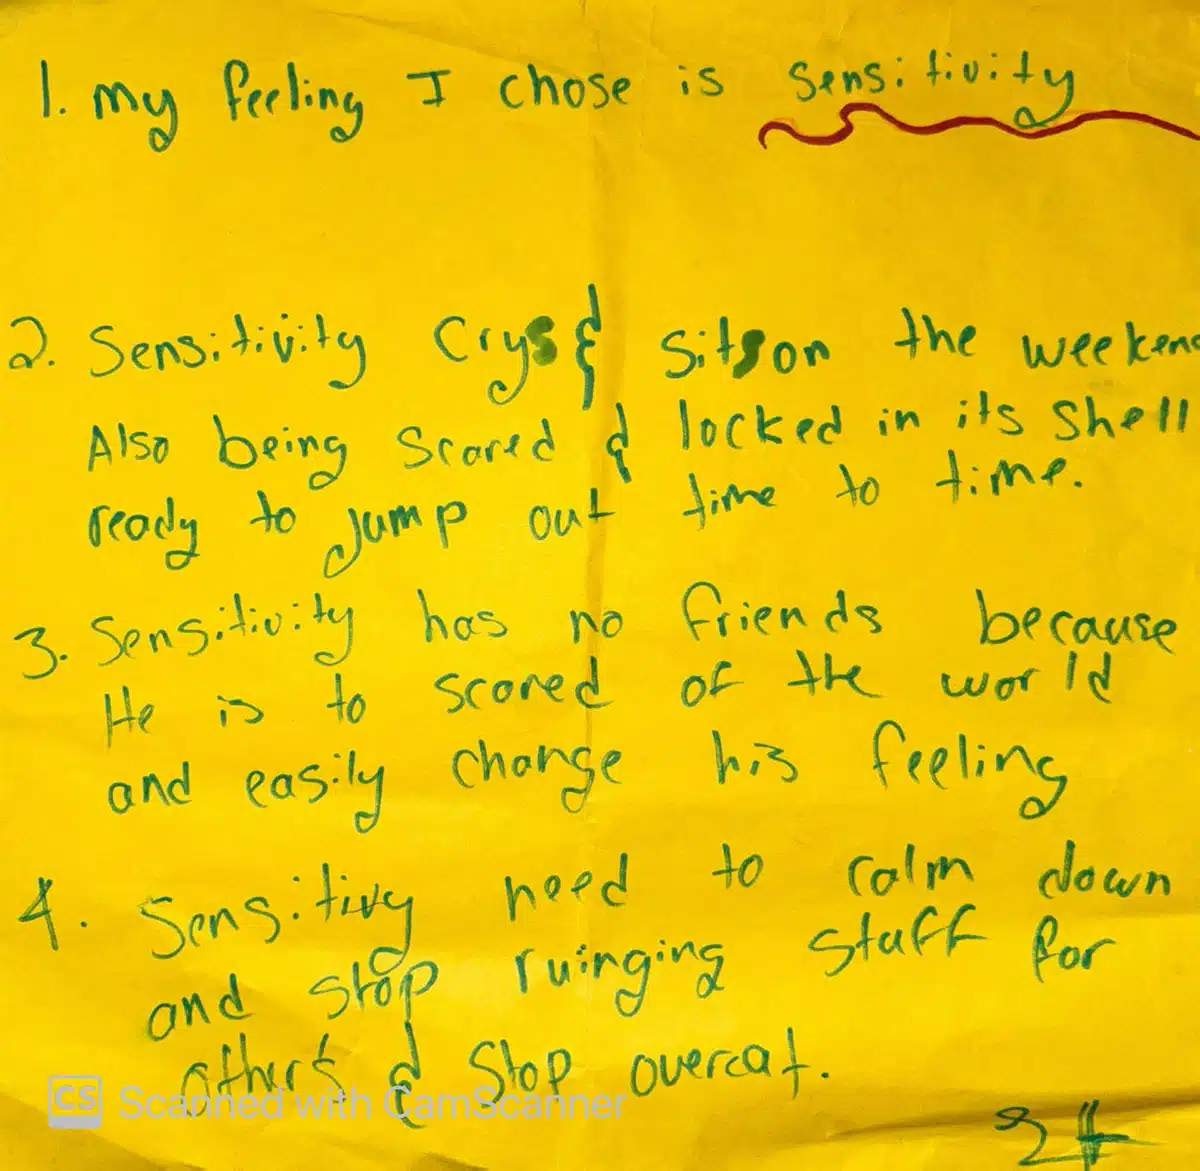 1. my feeling I chose is Sensitivity
2. Sensitivity Crys & Sits on the weekend
Also being Scared & locked in its Shell
ready to Jump out time to time.
3. Sensitivity has no friends because
He is to scared of the world
and easily change his feeling
4. Sensitivy need to calm down
and stop ruinging stuff for
others & Stop overcat.
CS Scanned with CamScanner